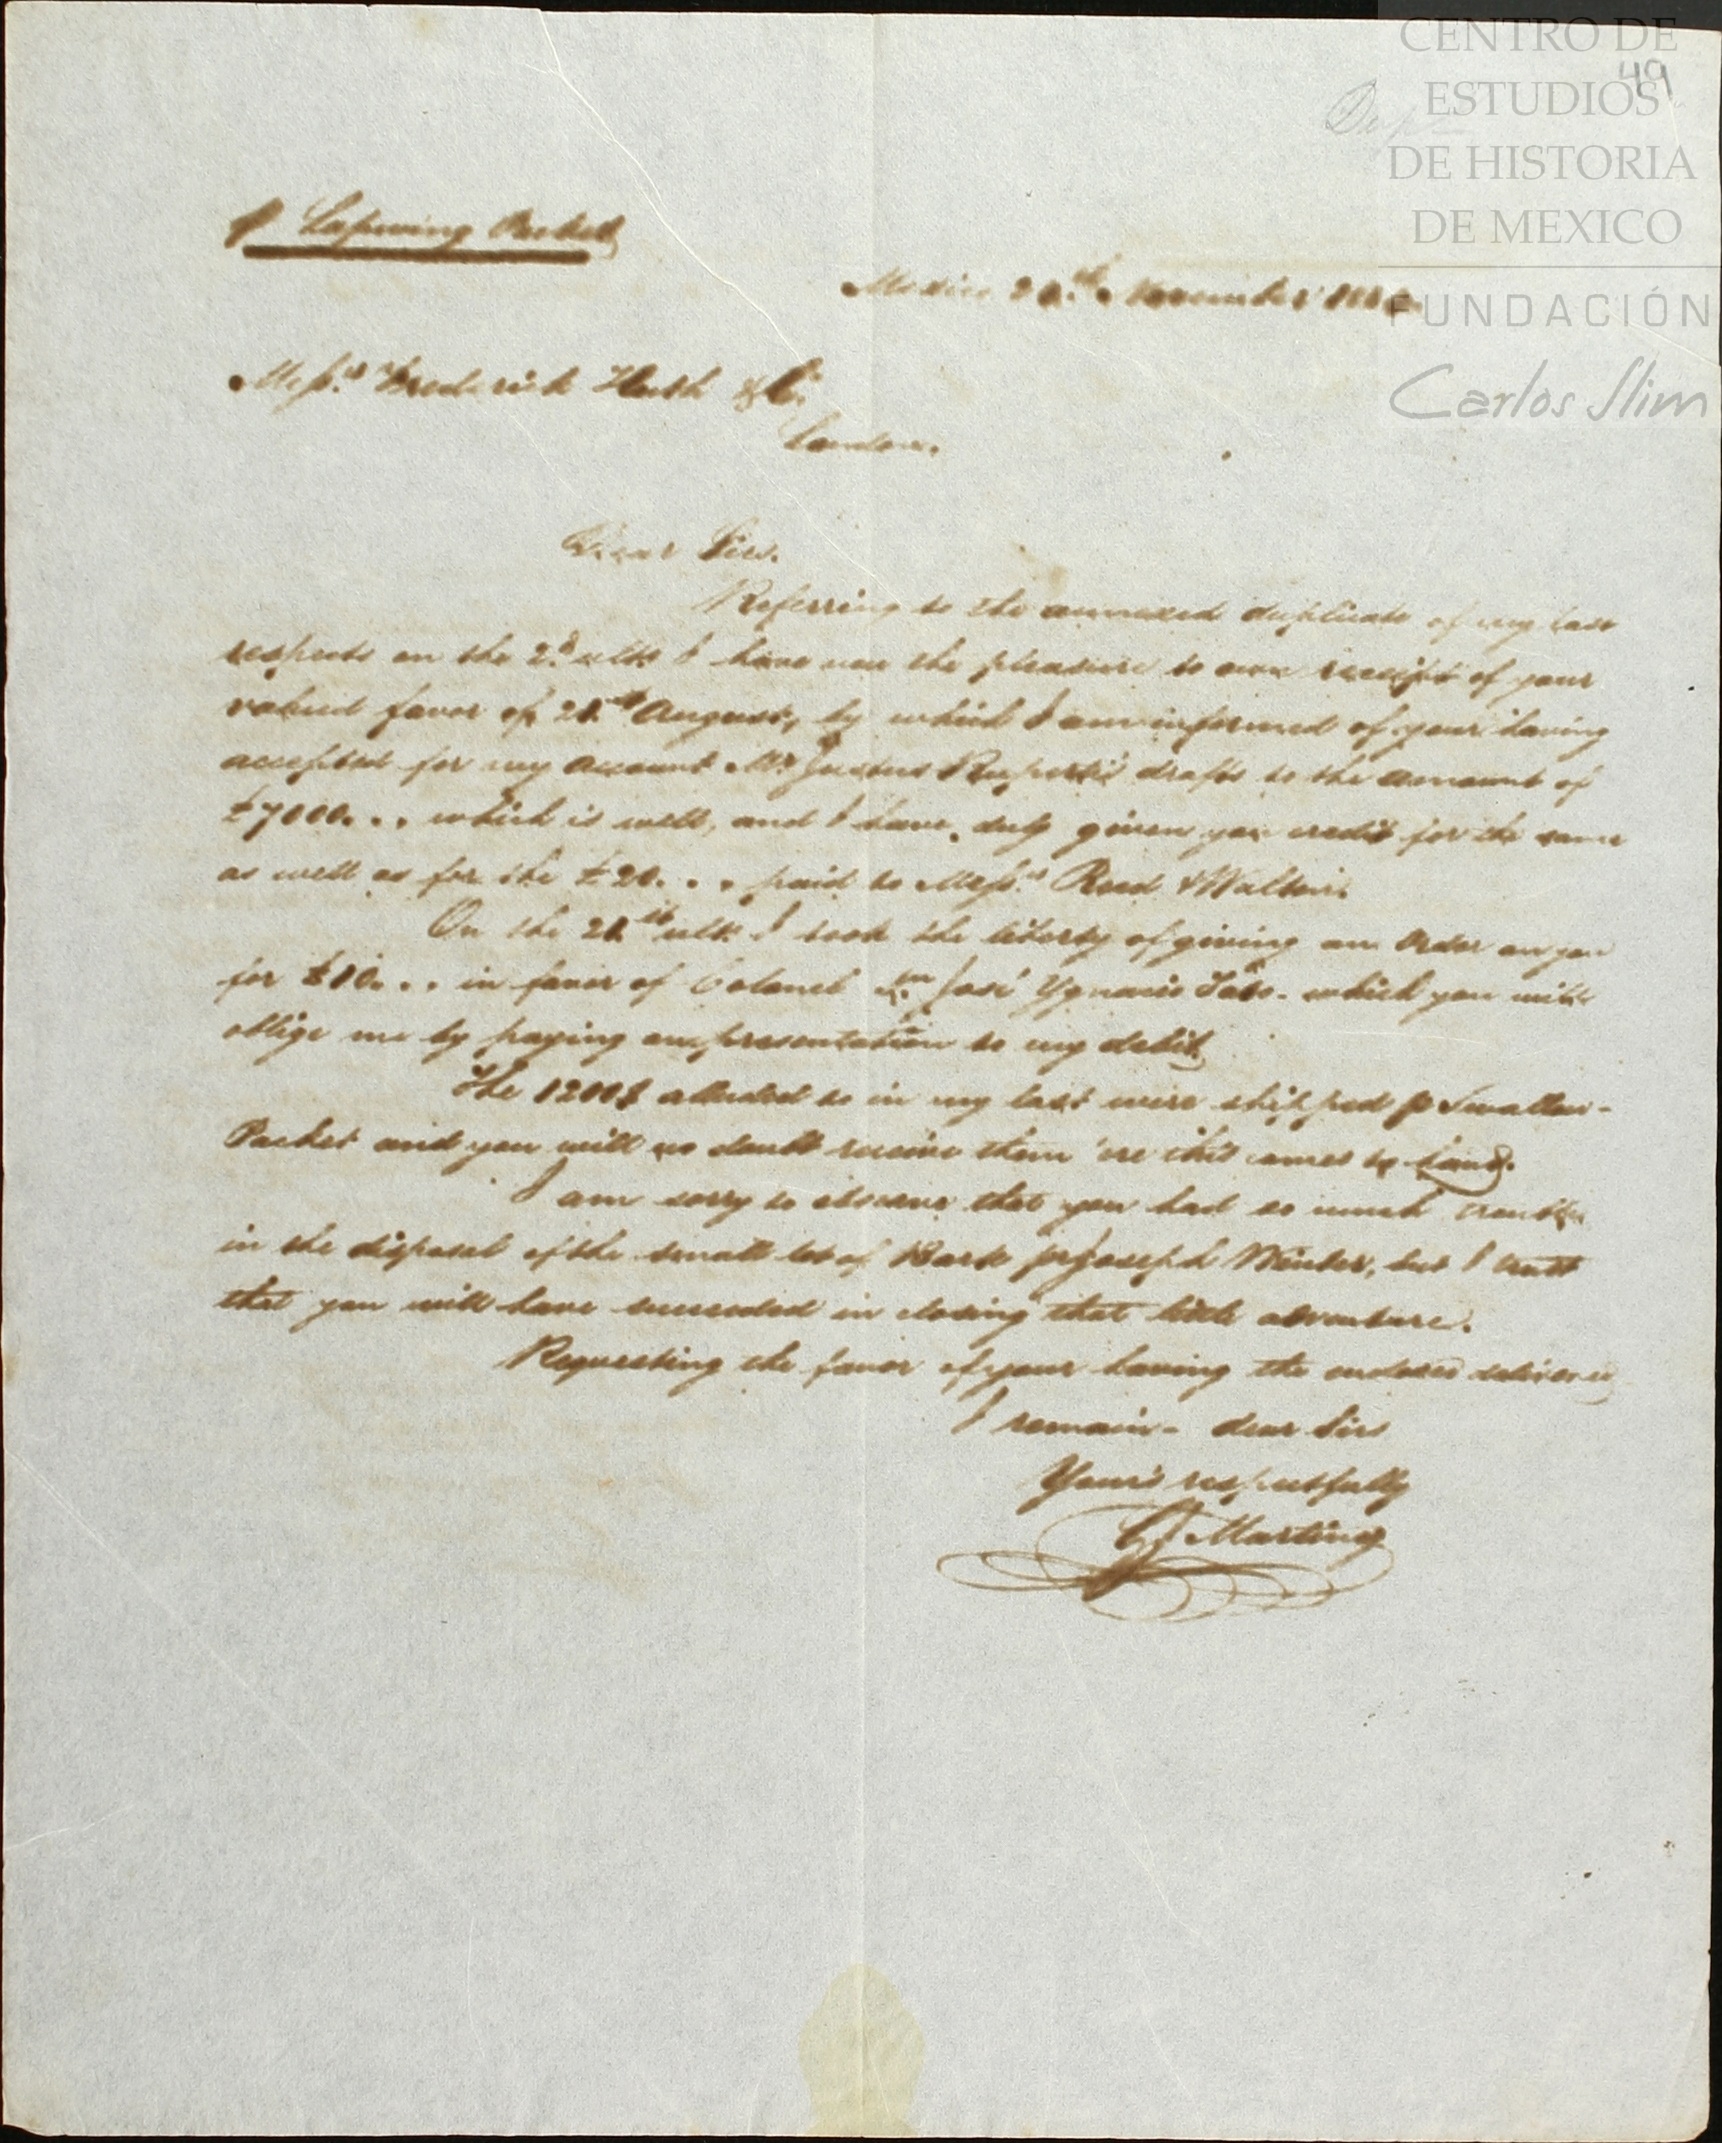 CENTRO DE
ESTUDIOS
DE HISTORIA
DE MEXICO
FUNDACIÓN
Carlos Slim
49
Dup
p Lapwing Packet
Mexico 20.th November
Mess.rs Frederick Huth & Co.
London.
Dear Sirs.
Referring to the annexed duplicate of my last
respects on the 2.d ulto I have now the pleasure to own receipt of your
valued favor of 21.st August, by which I am informed of your having
accepted for my account Mr. Justus Ruperti's drafts to the amount of
£7000. . . which is well, and I have duly given you credit for the same
as well as for the £20. . . paid to Mess.rs Reed & Walton.
On the 21.st ulto I took the liberty of giving an order on you
for £10. . . in favor of Colonel Dn José Ygnacio which you will
oblige me by paying on presentation to my debit.
The 1200$ alluded to in my last were shipped p Swallow-
Packet and you will no doubt receive them 'ere this comes to hand.
I am sorry to observe that you had so much trouble
in the disposal of the small lot of Bark pr Joseph Winter, but I trust
that you will have succeeded in closing that little adventure.
Requesting the favor of your having the enclosed delivered
I remain - dear Sirs
Your's respectfully
Martiny